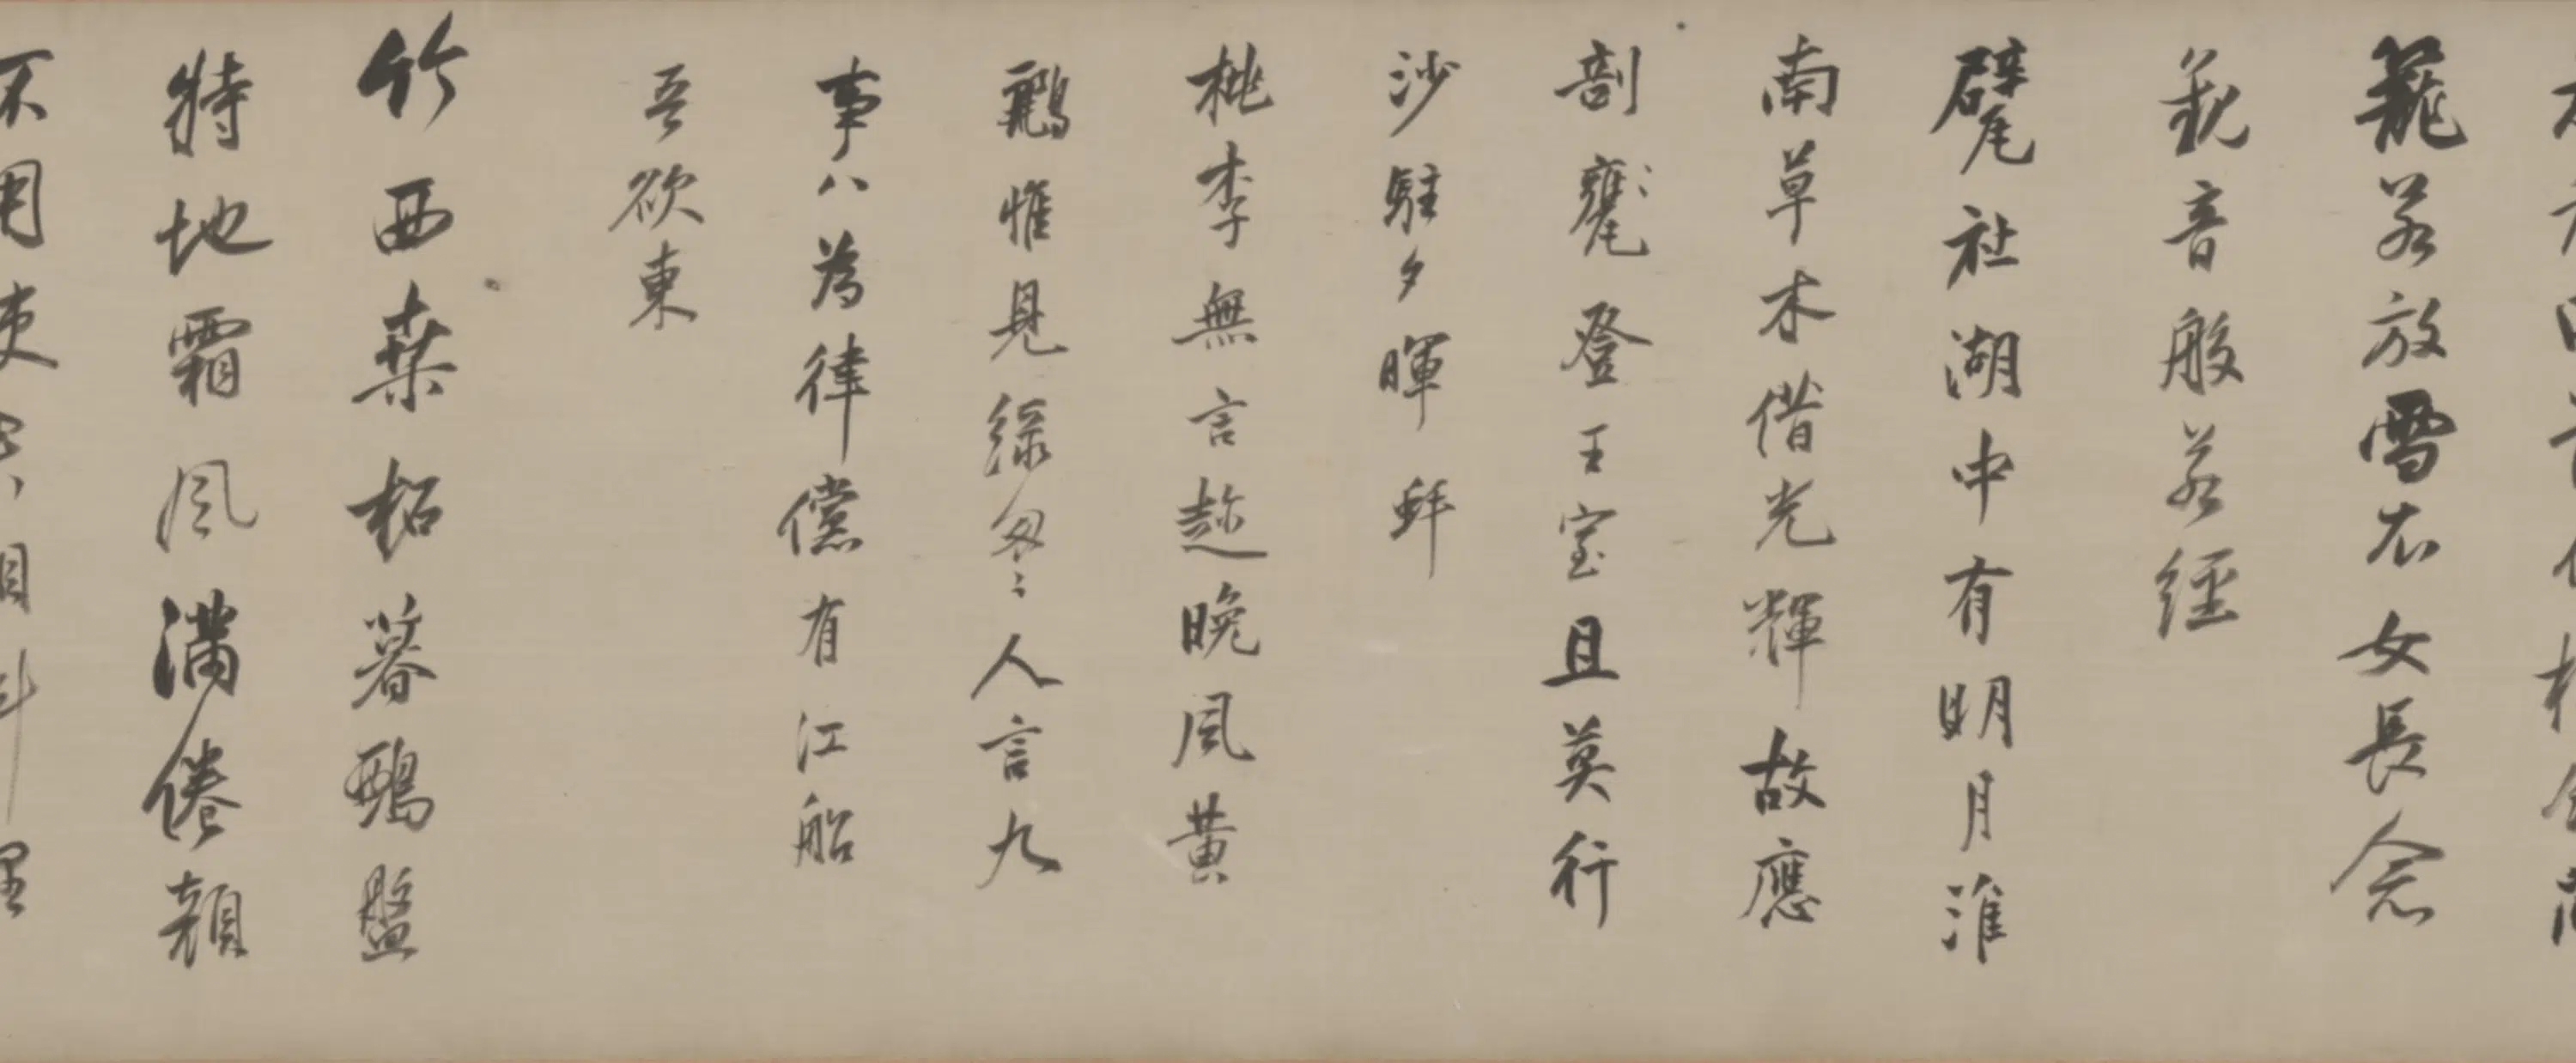 籠若放雪衣女長念
觀音般若經
甓社湖中有明月淮
南草木借光輝故應
剖甓〻登王室且莫行
沙駐夕暉 蚌
桃李無言趂晚風黃
鸝惟見綠匆〻人言九
事八為律儻有江船
吾欲東
竹西桒柘暮鵶盤
特地霜風滿倦顏
不用